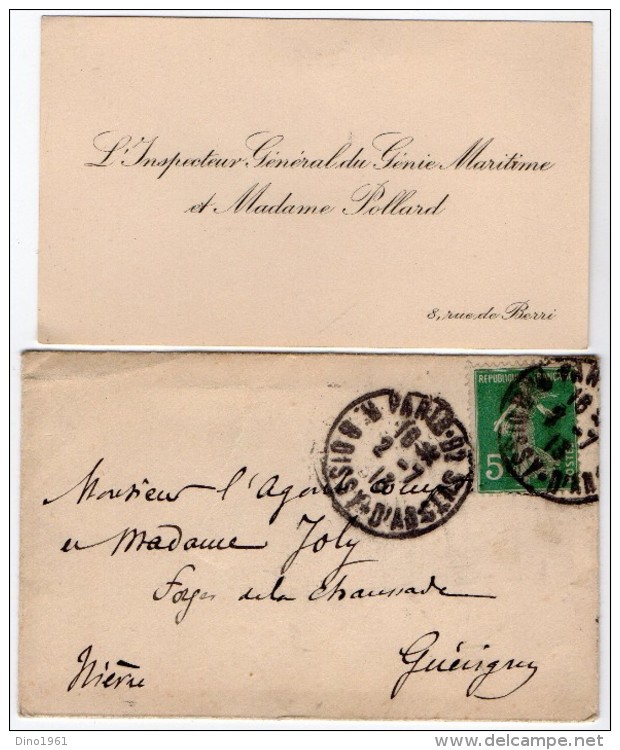 L'Inspecteur Général du Génie Maritime
et Madame Pollard
8, rue de Berri
REPUBLIQUE FRANÇAISE
5
POSTES
PARIS 82
R. BOISSY D'ANGLAS
Monsieur l'Agent
et Madame Joly
Forges de la Chaussade
Guérigny
Nièvre
Dino1961
www.delcampe.net